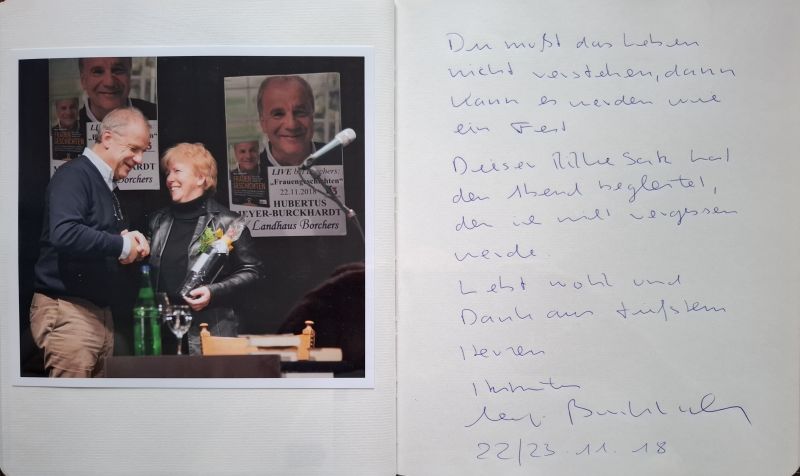 FRAUEN
GESCHICHTEN
LIVE
Borchers
FRAUEN
GESCHICHTEN
LIVE bei Borchers:
„Frauengeschichten"
22.11.2018
HUBERTUS
MEYER-BURCKHARDT
Landhaus Borchers
Du mußt das Leben
nicht verstehen, dann
kann es werden wie
ein Fest
Dieser Rilke Satz hat
den Abend begleitet,
den ich nicht vergessen
werde.
Lebt wohl und
Dank aus tiefstem
Herzen
Hubertus
Meyer-Burckhardt
22/23.11.18